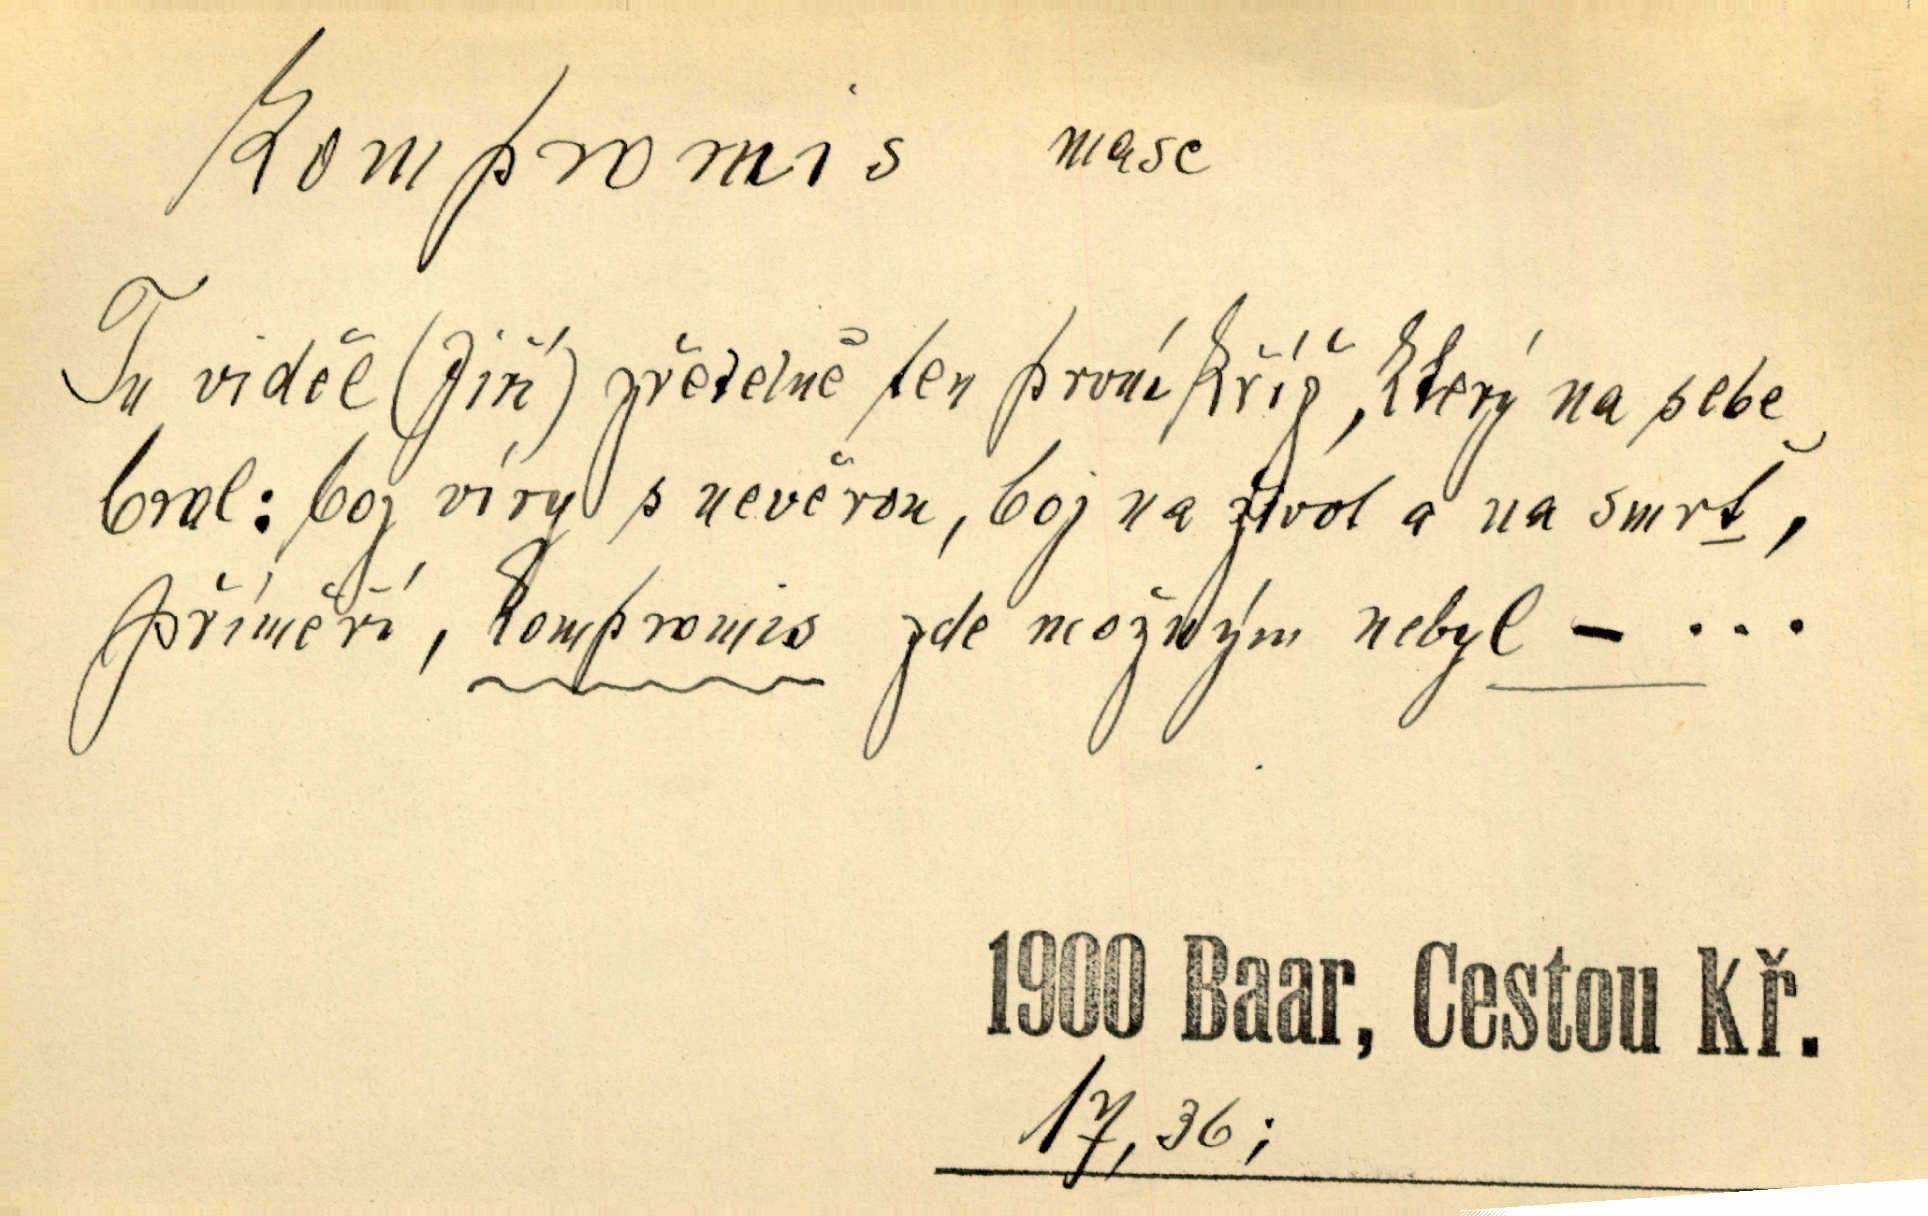 Kompromis masc
Tu viděl (Jiří) zřetelně ten první kříž, který na sebe
bral: boj víry s nevěrou, boj na život a na smrť,
příměří, kompromis zde možným nebyl – ...
1900 Baar, Cestou kř.
17, 36;